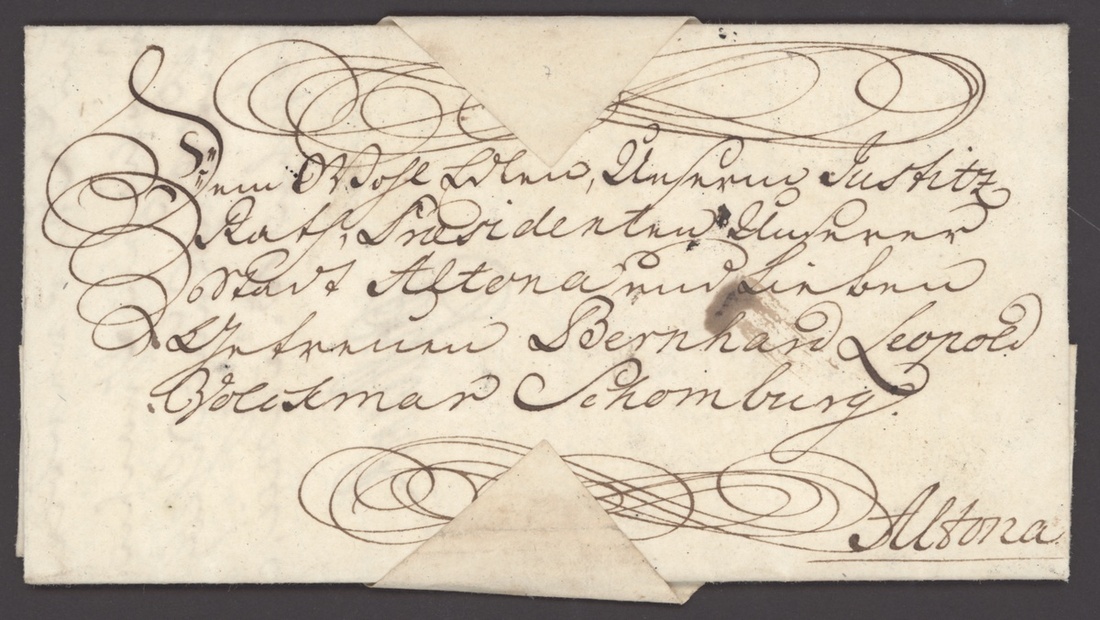 Dem Wohl Edlen, Unserm Justitz
Rath, Præsidenten Unserer
Stadt Altona und Lieben
Getreuen Bernhard Leopold
Volckmar Schomburg.
Altona